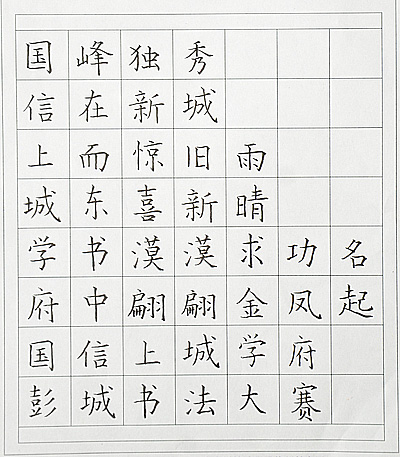 国峰独秀
信在新城
上而惊旧雨
城东喜新晴
学书漠漠求功名
府中翩翩金凤起
国信上城学府
彭城书法大赛